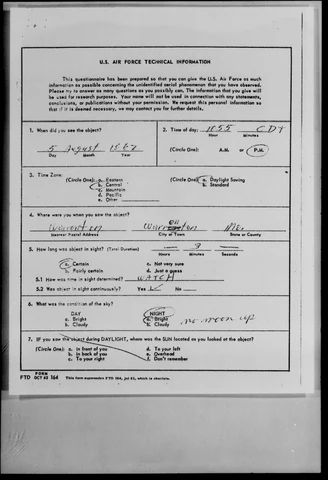 U.S. AIR FORCE TECHNICAL INFORMATION
This questionnaire has been prepared so that you can give the U.S. Air Force as much
information as possible concerning the unidentified aerial phenomenon that you have observed.
Please try to answer as many questions as you possibly can. The information that you give
will be used for research purposes. Your name will not be used in connection with any statements,
conclusions, or publications without your permission. We request this personal information so
that if it is deemed necessary, we may contact you for further details.
1. When did you see the object?
5 August
Day Month Year
2. Time of day: 1055 CDT
Hour Minutes
(Circle One): A.M. or P.M.
3. Time Zone:
(Circle One): a. Eastern
b. Central
c. Mountain
d. Pacific
e. Other
(Circle One): a. Daylight Saving
b. Standard
4. Where were you when you saw the object?
Warrenton Warrenton Mo.
Nearest Postal Address City or Town State or County
5. How long was object in sight? (Total Duration) 3
Hours Minutes Seconds
a. Certain c. Not very sure
b. Fairly certain d. Just a guess
5.1 How was time in sight determined? WATCH
5.2 Was object in sight continuously? Yes No
6. What was the condition of the sky?
DAY NIGHT
a. Bright a. Bright
b. Cloudy b. Cloudy
no moon up
7. IF you saw the object during DAYLIGHT, where was the SUN located as you looked at the object?
(Circle One): a. In front of you d. To your left
b. In back of you e. Overhead
c. To your right f. Don't remember
FORM
FTD OCT 62 164 This form supersedes FTD 164, Jul 61, which is obsolete.